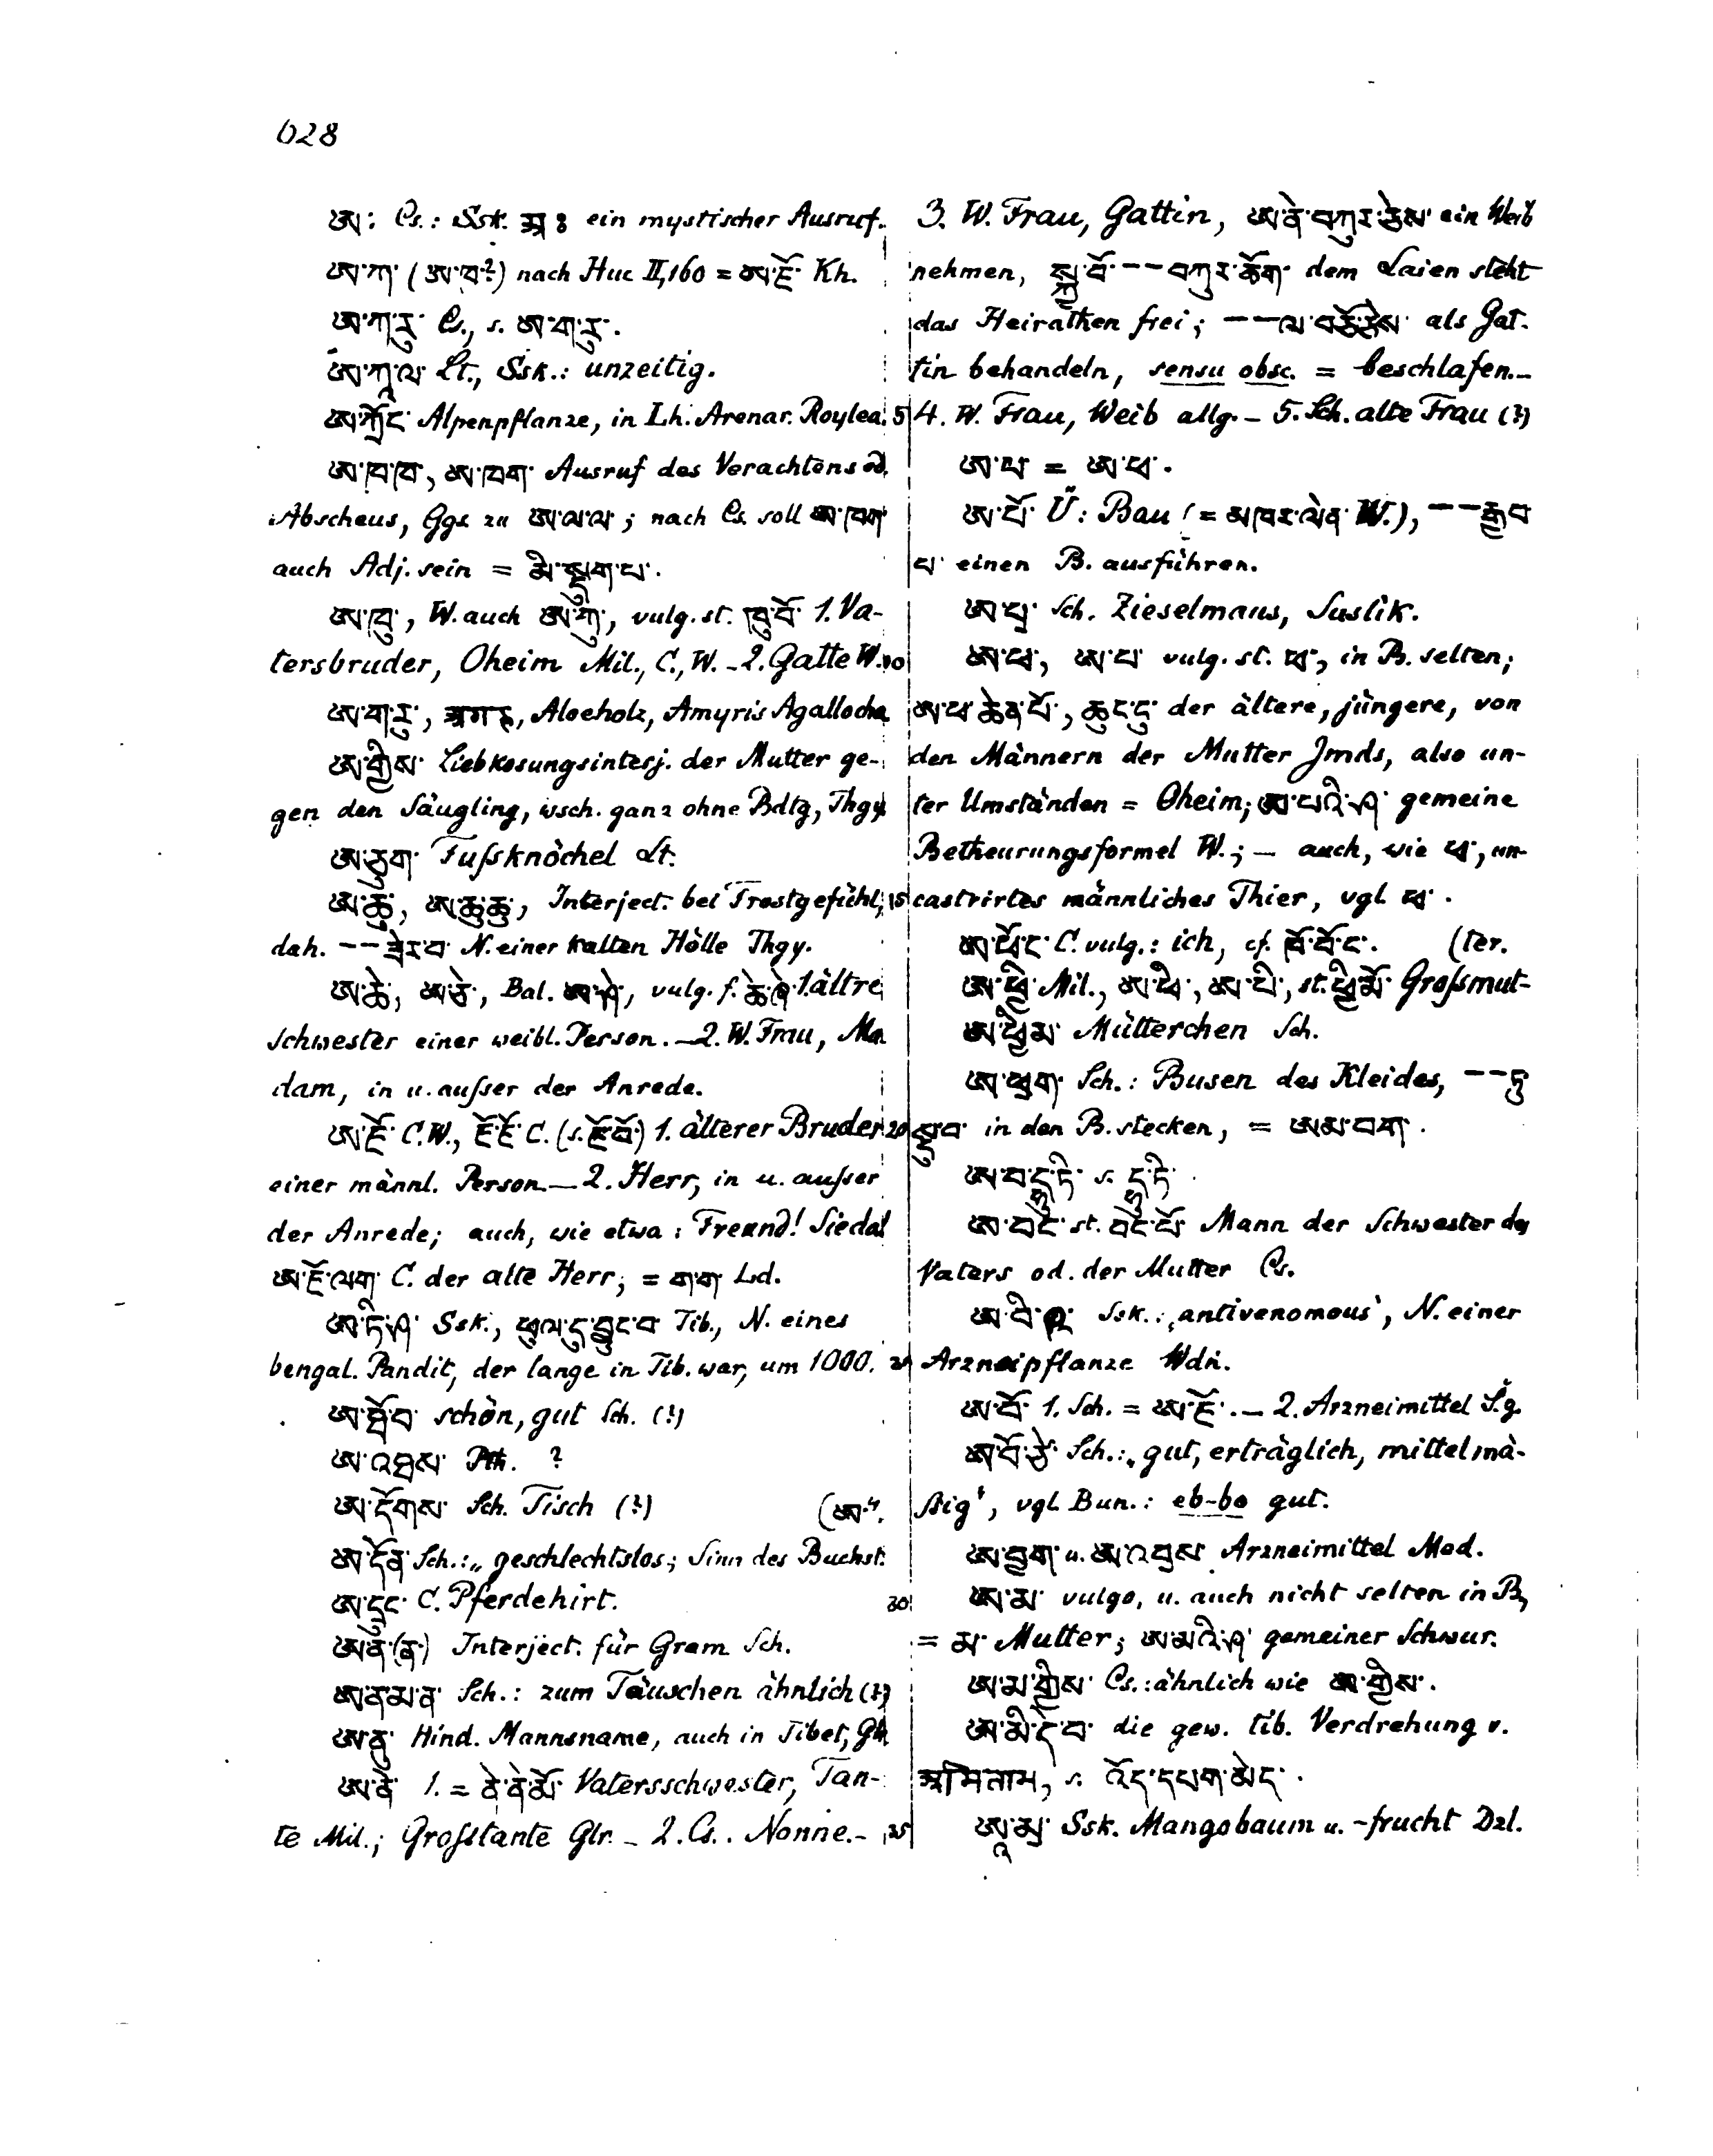 628
ཨ: Cs.: Ssk. अः ein mystischer Ausruf.
ཨ་ཀ་ (ཨ་ཁ་?) nach Huc II, 160 = ཨ་ཇོ་ Kh.
ཨ་ཀ་རུ་ Cs., s. ཨ་ག་རུ་.
ཨ་ཀཱ་ལ་ Lt., Ssk.: unzeitig.
ཨ་ཀྲོང་ Alpenpflanze, in Lh. Arenar. Roylea. 5
ཨ་ཁ་ཁ་, ཨ་ཁག་ Ausruf des Verachtens od.
Abscheus, Ggs. zu ཨ་ལ་ལ་; nach Cs. soll ཨ་ཁག་
auch Adj. sein = མི་སྡུག་པ་.
ཨ་ཁུ་, W. auch ཨ་ཀུ་, vulg. st. ཁུ་བོ་ 1. Va-
tersbruder, Oheim Mil., C., W. – 2. Gatte W. 10
ཨ་ག་རུ་, अगरु, Aloeholz, Amyris Agallocha
ཨ་གྱིས་ Liebkosungsinterj. der Mutter ge-
gen den Säugling, wsch. ganz ohne Bdtg, Thgy
ཨ་ཅུག་ Fußknöchel Lt.
ཨ་ཆུ་, ཨ་ཆུ་ཆུ་, Interject. bei Frostgefühl, 15
dah. –– ཟེར་བ་ N. einer kalten Hölle Thgy.
ཨ་ཆེ་, ཨ་ཅེ་, Bal. ཨ་ཤེ་, vulg. f. ཆེ་ཞེ་ 1. ältre
Schwester einer weibl. Person. – 2. W. Frau, Ma
dam, in u. außer der Anrede.
ཨ་ཇོ་ C. W., ཇོ་ཇོ་ C. (s. ཇོ་བོ་) 1. älterer Bruder 20
einer männl. Person – 2. Herr, in u. außer
der Anrede; auch, wie etwa: Freund! Sie da!
ཨ་ཇོ་ལག་ C. der alte Herr; = ག་ག་ Ld.
ཨ་ཏི་ཤ་ Ssk., ཕུལ་དུ་བྱུང་བ་ Tib., N. eines
bengal. Pandit, der lange in Tib. war, um 1000. 25
ཨ་ཐོ་བ་ schön, gut Sch. (?)
ཨ་འཐས་ Pth. ?
ཨ་དོགས་ Sch. Tisch (?) (ཨ་“.
ཨ་དོན་ Sch.: „geschlechtslos; Sinn des Buchst.
ཨ་དྲུང་ C. Pferdehirt. 30
ཨ་ན་(ན་) Interject. für Gram Sch.
ཨ་ན་མ་ན་ Sch.: zum Täuschen ähnlich (?)
ཨ་ནུ་ Hind. Mannsname, auch in Tibet, Glr.
ཨ་ནེ་ 1. = ནེ་ནེ་མོ་ Vatersschwester, Tan-
te Mil.; Großtante Glr. – 2. Cs. Nonne. – 35
3. W. Frau, Gattin, ཨ་ནེ་བཀུར་ཅེས་ ein Weib
nehmen, སྐྱ་བོ་ –– བཀུར་ཆོག་ dem Laien steht
das Heirathen frei; –– ལ་བཅོ་ཅེས་ als Gat-
tin behandeln, sensu obsc. = beschlafen. –
4. W. Frau, Weib allg. – 5. Sch. alte Frau (?)
ཨ་པ་ = ཨ་ཕ་.
ཨ་པོ་ Ü: Bau (= མཁར་ལེན་ W.), –– རྒྱབ་
པ་ einen B. ausführen.
ཨ་པྲ་ Sch. Zieselmaus, Suslik.
ཨ་ཕ་, ཨ་པ་ vulg. st. ཕ་, in B. selten;
ཨ་ཕ་ཆེན་པོ་, ཆུང་ངུ་ der ältere, jüngere, von
den Männern der Mutter Jmds, also un-
ter Umständen = Oheim; ཨ་པའི་ཤ་ gemeine
Betheurungsformel W.; – auch, wie ཕ་, un-
castrirtes männliches Thier, vgl. ཕ་.
ཨ་ཕོ་ང་ C. vulg.: ich, cf. ཁོ་བོ་ང་. (ter.
ཨ་ཕྱི་ Mil., ཨ་ཕི་, ཨ་པི་, st. ཕྱི་མོ་ Großmut-
ཨ་ཕྱི་མ་ Mütterchen Sch.
ཨ་ཕྲག་ Sch.: Busen des Kleides, –– ཏུ་
སྡུ་བ་ in den B. stecken, = ཨམ་བག་.
ཨ་བ་དྷཱུ་ཏི་ s. དྷཱུ་ཏི་
ཨ་བང་ st. བང་པོ་ Mann der Schwester des
Vaters od. der Mutter Cs.
ཨ་བི་ཥ་ Ssk.: ‚antivenomous‘, N. einer
Arzneipflanze Wdn.
ཨ་བོ་ 1. Sch. = ཨ་ཇོ་. – 2. Arzneimittel S.g.
ཨ་བོ་ཙེ་ Sch.: „gut, erträglich, mittelmä-
ßig“, vgl. Bun.: eb-bo gut.
ཨ་བྲག་ u. ཨ་འབྲས་ Arzneimittel Med.
ཨ་མ་ vulgo, u. auch nicht selten in B,
= མ་ Mutter; ཨ་མའི་ཤ་ gemeiner Schwur.
ཨ་མ་གྱིས་ Cs.: ähnlich wie ཨ་གྱིས་.
ཨ་མི་དེ་བ་ die gew. tib. Verdrehung v.
अमिताभ, s. འོད་དཔག་མེད་.
ཨཱ་མྲ་ Ssk. Mangobaum u. -frucht Dzl.